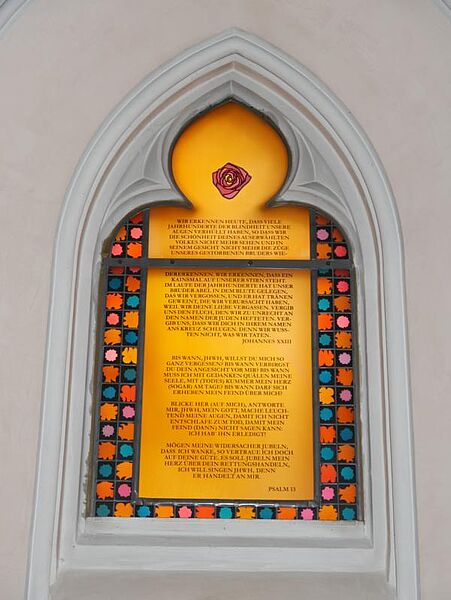 WIR ERKENNEN HEUTE, DASS VIELE
JAHRHUNDERTE DER BLINDHEIT UNSERE
AUGEN VERHÜLLT HABEN, SO DASS WIR
DIE SCHÖNHEIT DEINES AUSERWÄHLTEN
VOLKES NICHT MEHR SEHEN UND IN
SEINEM GESICHT NICHT MEHR DIE ZÜGE
UNSERES GESTORBENEN BRUDERS WIE-
DERERKENNEN. WIR ERKENNEN, DASS EIN
KAINSMAL AUF UNSERER STIRN STEHT.
IM LAUFE DER JAHRHUNDERTE HAT UNSER
BRUDER ABEL IN DEM BLUTE GELEGEN,
DAS WIR VERGOSSEN, UND ER HAT TRÄNEN
GEWEINT, DIE WIR VERURSACHT HABEN,
WEIL WIR DEINE LIEBE VERGASSEN. VERGIB
UNS DEN FLUCH, DEN WIR ZU UNRECHT AN
DEN NAMEN DER JUDEN HEFTETEN. VER-
GIB UNS, DASS WIR DICH IN IHREM NAMEN
ANS KREUZ SCHLUGEN, DENN WIR WUSS-
TEN NICHT, WAS WIR TATEN.
JOHANNES XXIII
BIS WANN, JHWH, WILLST DU MICH SO
GANZ VERGESSEN? BIS WANN VERBIRGST
DU DEIN ANGESICHT VOR MIR? BIS WANN
MUSS ICH MIT GEDANKEN QUÄLEN MEINE
SEELE, MIT (TODES) KUMMER MEIN HERZ
(SOGAR) AM TAGE? BIS WANN DARF SICH
ERHEBEN MEIN FEIND ÜBER MICH?
BLICKE HER (AUF MICH), ANTWORTE
MIR, JHWH, MEIN GOTT, MACHE LEUCH-
TEND MEINE AUGEN, DAMIT ICH NICHT
ENTSCHLAFE ZUM TOD, DAMIT MEIN
FEIND (DANN) NICHT SAGEN KANN:
ICH HAB' IHN ERLEDIGT!
MÖGEN MEINE WIDERSACHER JUBELN,
DASS ICH WANKE, SO VERTRAUE ICH DOCH
AUF DEINE GÜTE. ES SOLL JUBELN MEIN
HERZ ÜBER DEIN RETTUNGSHANDELN,
ICH WILL SINGEN JHWH, DENN
ER HANDELT AN MIR.
PSALM 13